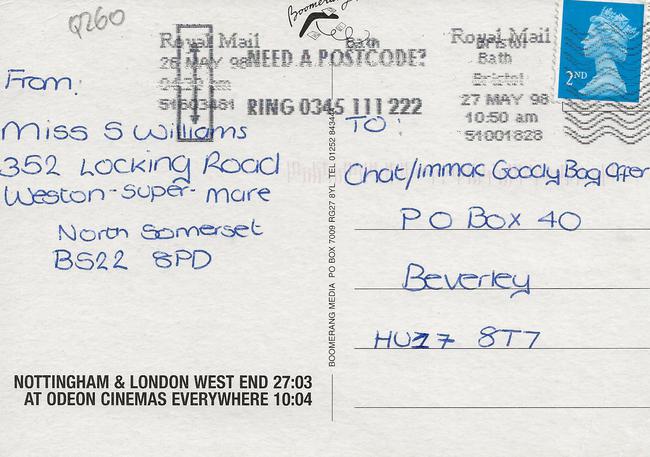 Q260
Boomerang
Royal Mail
26 MAY 98
51603481
NEED A POSTCODE?
RING 0345 111 222
Bath
Royal Mail
Bristol
Bath
Bristol
27 MAY 98
10:50 am
51001828
2ND
From:
Miss S Williams
352 Locking Road
Weston-Super-Mare
North Somerset
BS22 8PD
TO:
Chat/Immac Goody Bag Offer
PO Box 40
Beverley
HU17 8T7
BOOMERANG MEDIA PO BOX 7009 RG27 8YL TEL 01252 843444
NOTTINGHAM & LONDON WEST END 27:03
AT ODEON CINEMAS EVERYWHERE 10:04